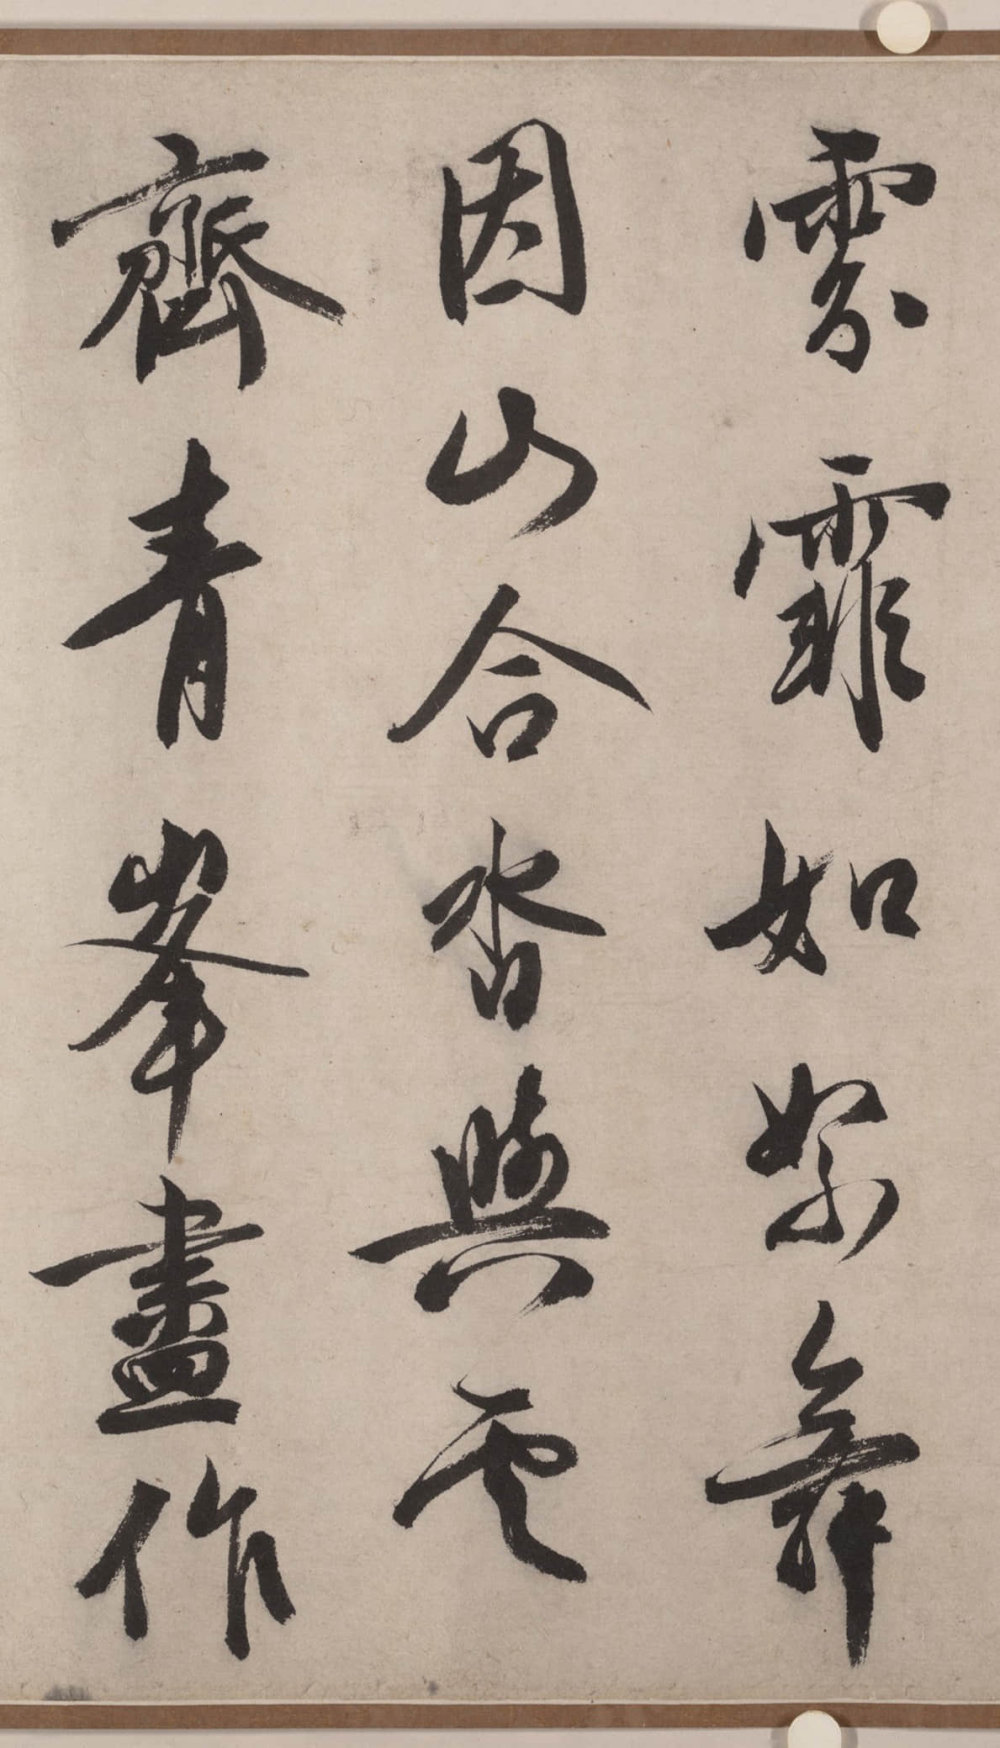 雰霏如絮舞
因山合沓與雲
齊青峯盡作